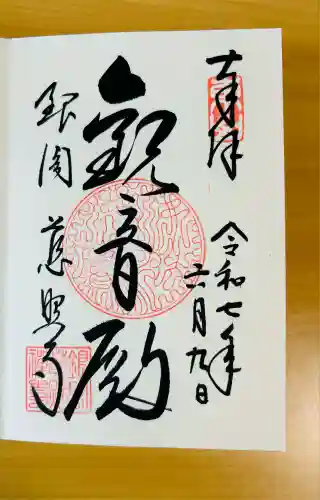 奉拝
令和七年
六月九日
觀音殿
銀閣 慈照寺